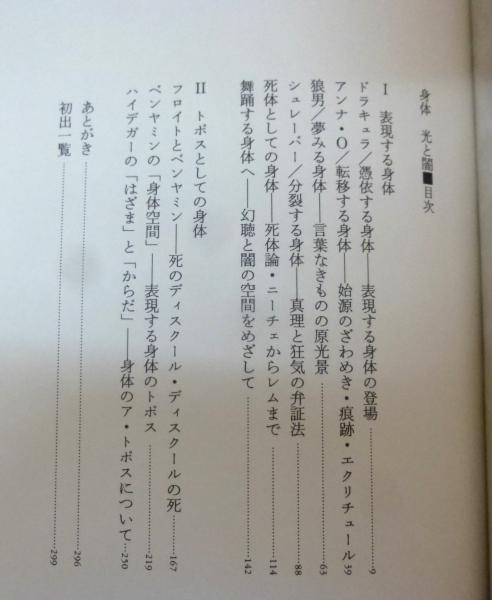 身体 光と闇■目次
I 表現する身体
ドラキュラ／憑依する身体――表現する身体の登場……………9
アンナ・O／転移する身体――始源のざわめき・痕跡・エクリチュール 39
狼男／夢みる身体――言葉なきものの原光景……………63
シュレーバー／分裂する身体――真理と狂気の弁証法……………88
死体としての身体――死体論・ニーチェからレムまで……………114
舞踊する身体へ――幻聴と闇の空間をめざして……………142
II トポスとしての身体
フロイトとベンヤミン――死のディスクール・ディスクールの死……167
ベンヤミンの「身体空間」――表現する身体のトポス……………219
ハイデガーの「はざま」と「からだ」――身体のア・トポスについて……250
あとがき……………296
初出一覧……………299